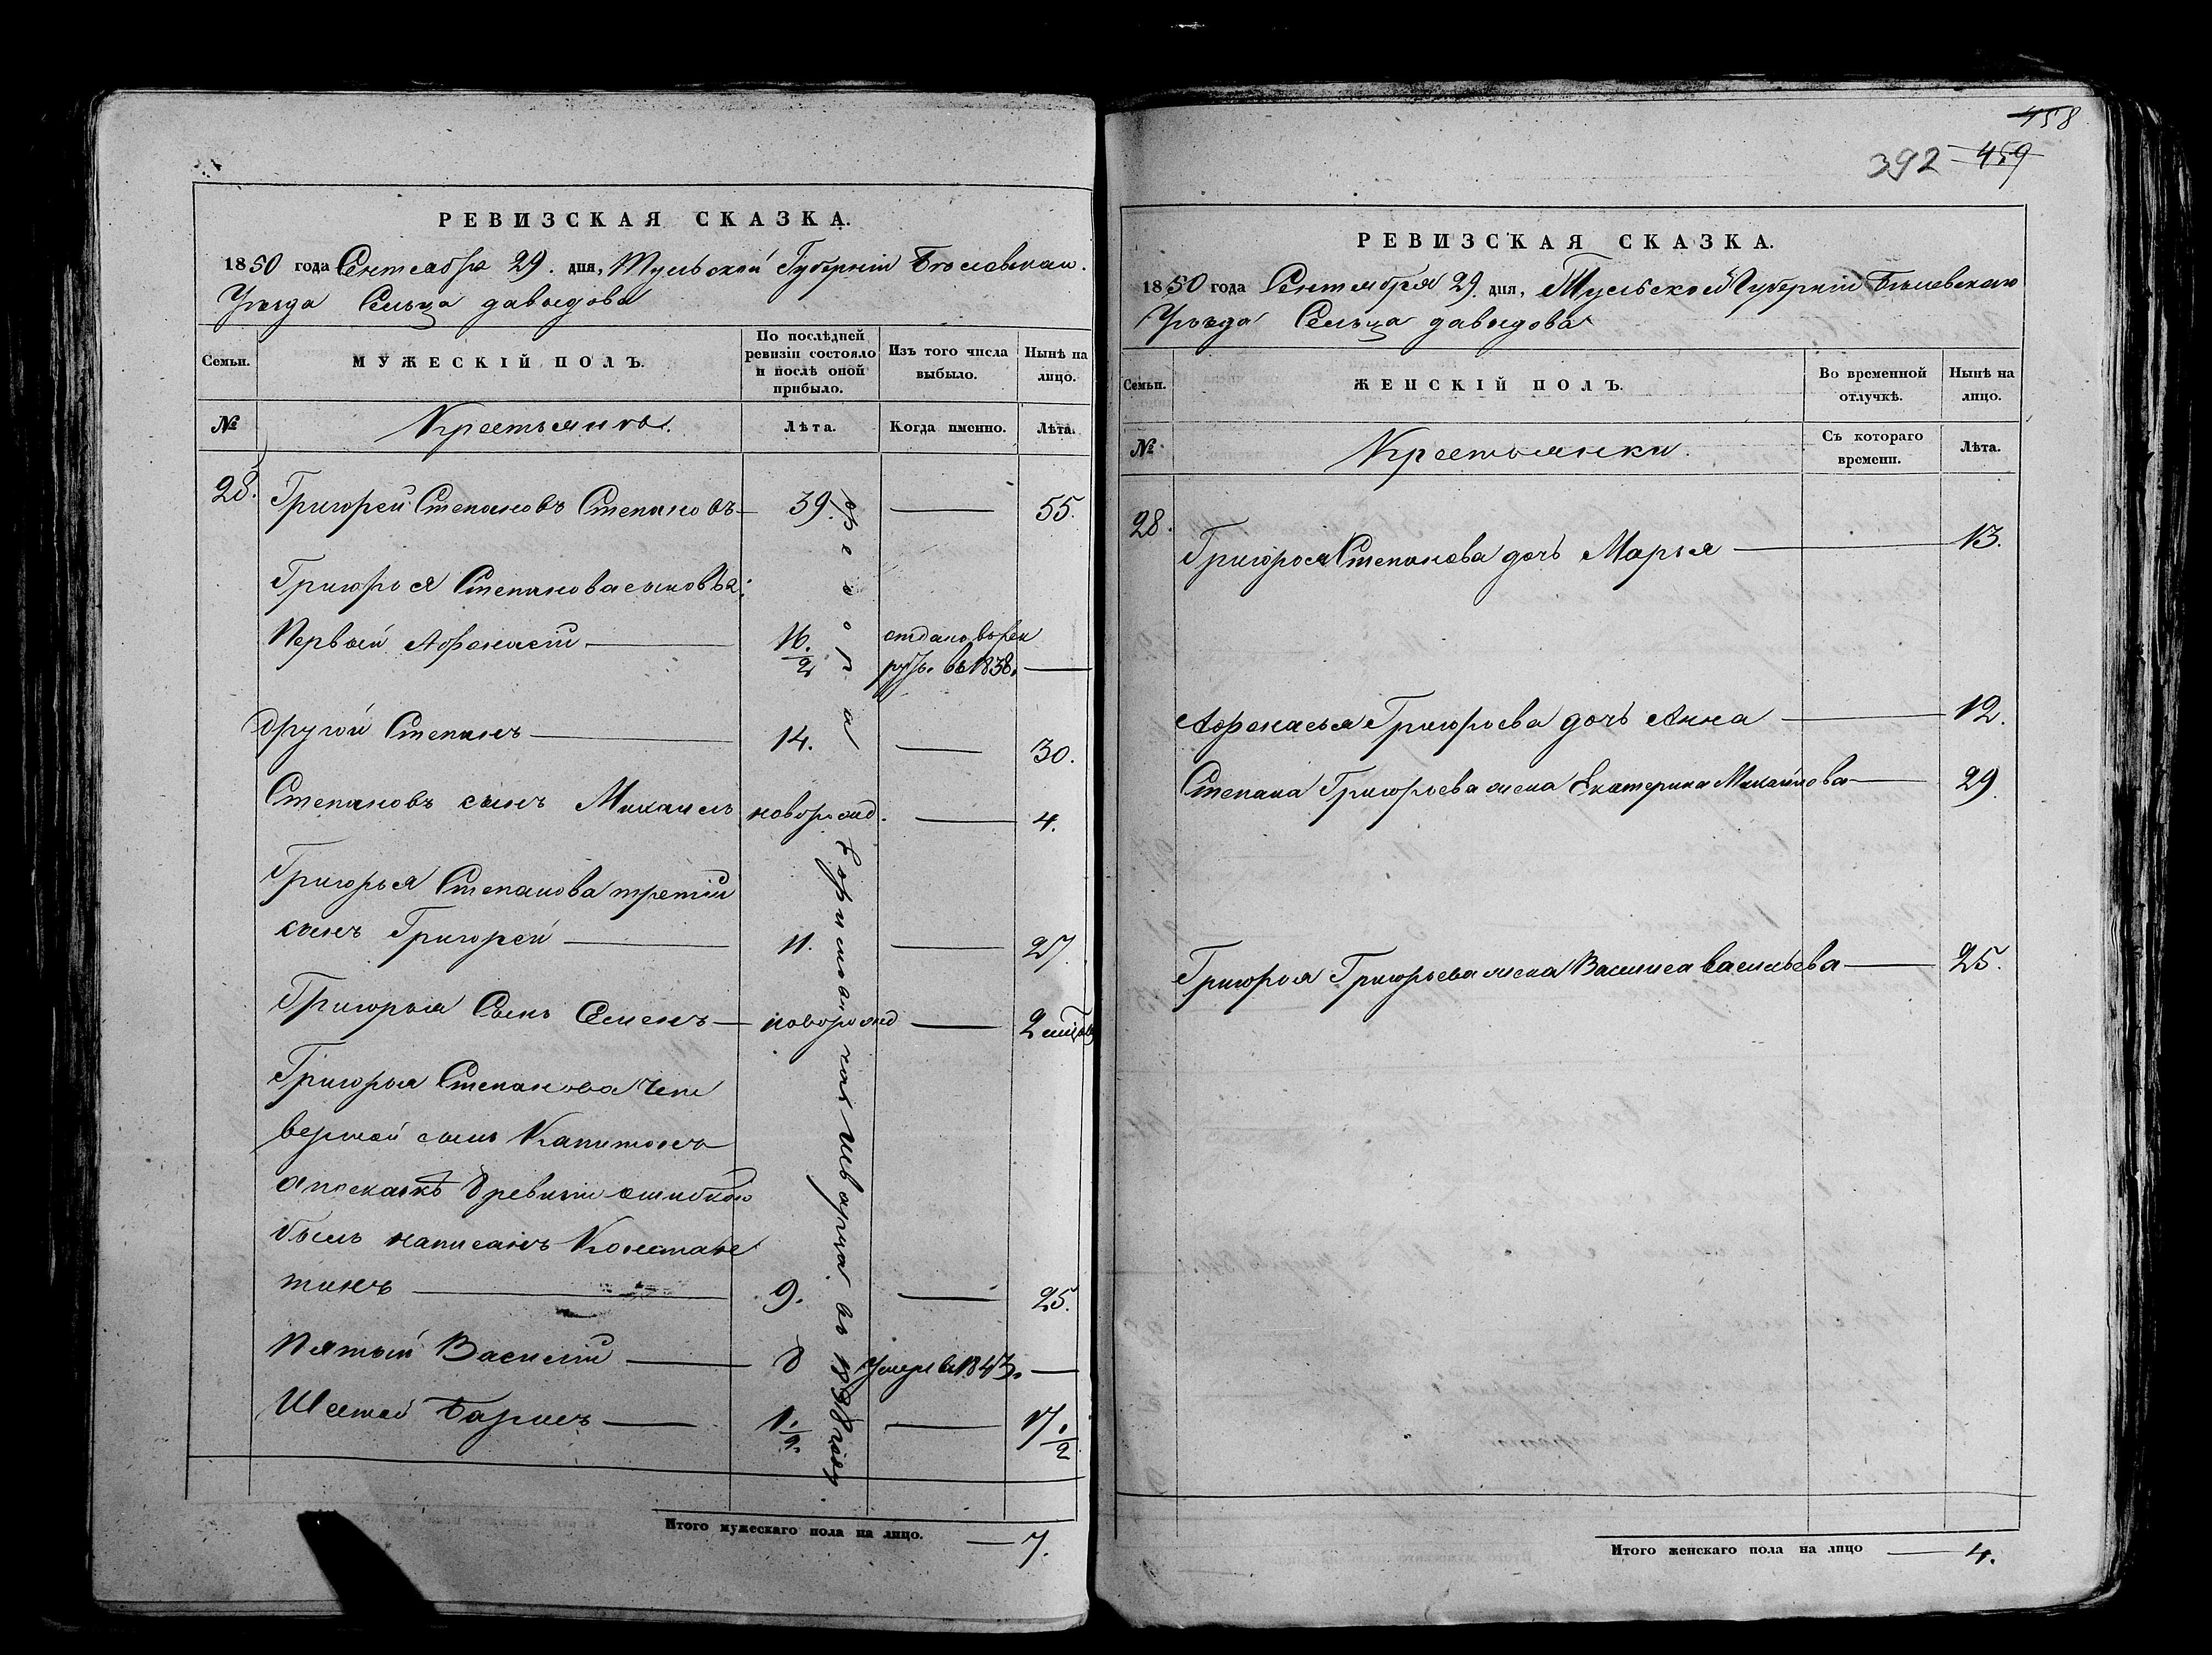 РЕВИЗСКАЯ СКАЗКА.
1850 года Сентября 29. дня, Тульской Губернiи Белевскаго
Уезда Сельца давыдова
Семьи.
МУЖЕСКIЙ ПОЛЪ.
По послѣдней ревизiи состояло и послѣ оной прибыло.
Изъ того числа выбыло.
Нынѣ на лицо.
№
Крестьяне.
Лѣта.
Когда именно.
Лѣта.
28. Григорей Степановъ Степановъ 39. — 55.
Григорья Степанова сыновья:
Первый Афонасiй 16. 1/2 отдано въ рек
рут. въ 1838. —
Другой Степанъ 14. — 30.
Степановъ сынъ Михаилъ новорожд. — 4.
Григорья Степанова третiй
сынъ Григорей 11. — 27.
Григорья Сынъ Семенъ — новорожд — 2
Григорья Степанова Чет
вертой сынъ Капитонъ
а по сказкѣ 8 ревизiи ошибкою
былъ написанъ Констан
тинъ 9. — 25.
Пятый Василiй — 8 Умеръ въ 1843. —
Шестой Барисъ — 1. 1/2 — 17 1/2
въ 1838 году
Итого мужескаго пола на лицо. — 7.
458
392 459
РЕВИЗСКАЯ СКАЗКА.
1850 года Сентября 29. дня, Тульской Губернiи Белевскаго
Уезда Сельца давыдова
Семьи.
ЖЕНСКIЙ ПОЛЪ.
Во временной отлучкѣ.
Нынѣ на лицо.
№
Крестьянки.
Съ котораго времени.
Лѣта.
28.
Григорья Степанова дочь Марья — 13.
Афонасья Григорьева дочь Анна — 12.
Степана Григорьева жена Екатерина Михайлова — 29
Григорья Григорьева жена Василиса Васильева — 25.
Итого женскаго пола на лицо — 4.